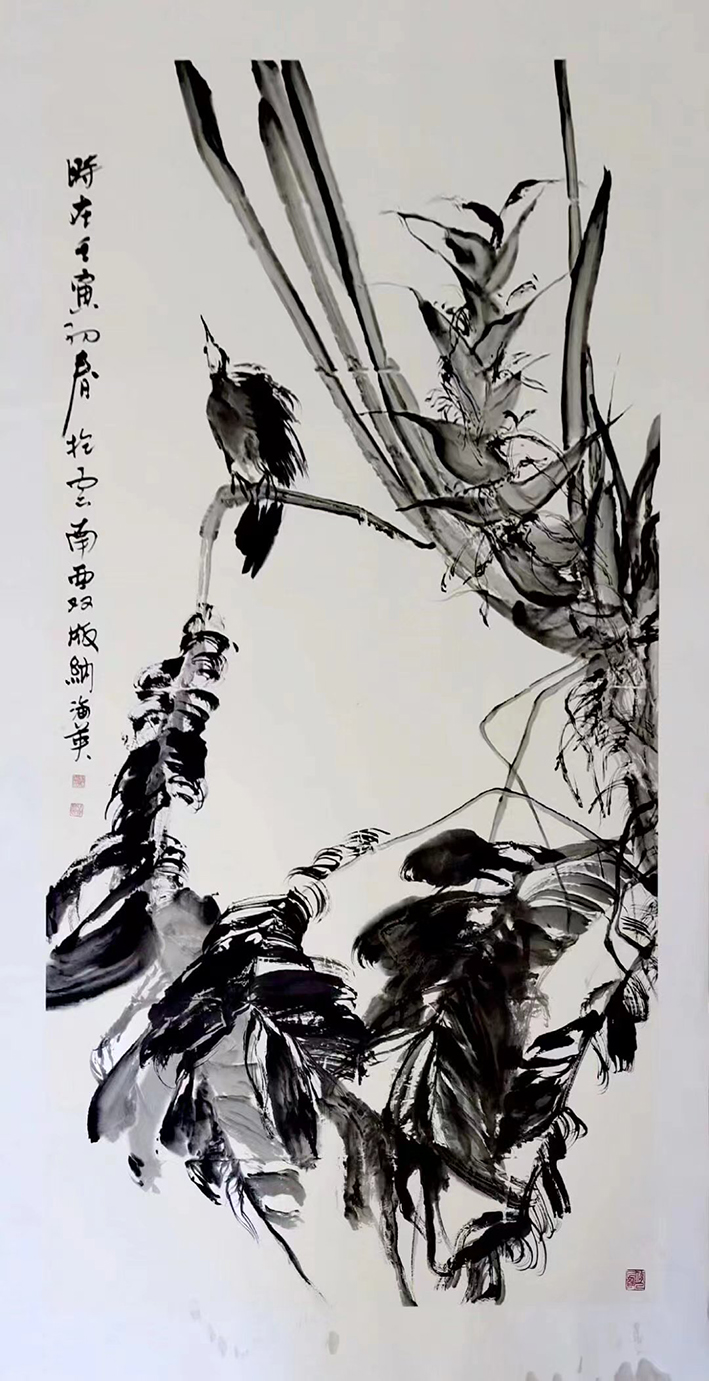 時在壬寅初春於雲南西双版納海英